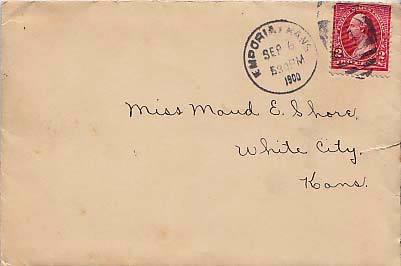 EMPORIA, KANS.
SEP 6
530PM
1900
TWO CENTS
Miss Maud E. Shore.
White City.
Kans.